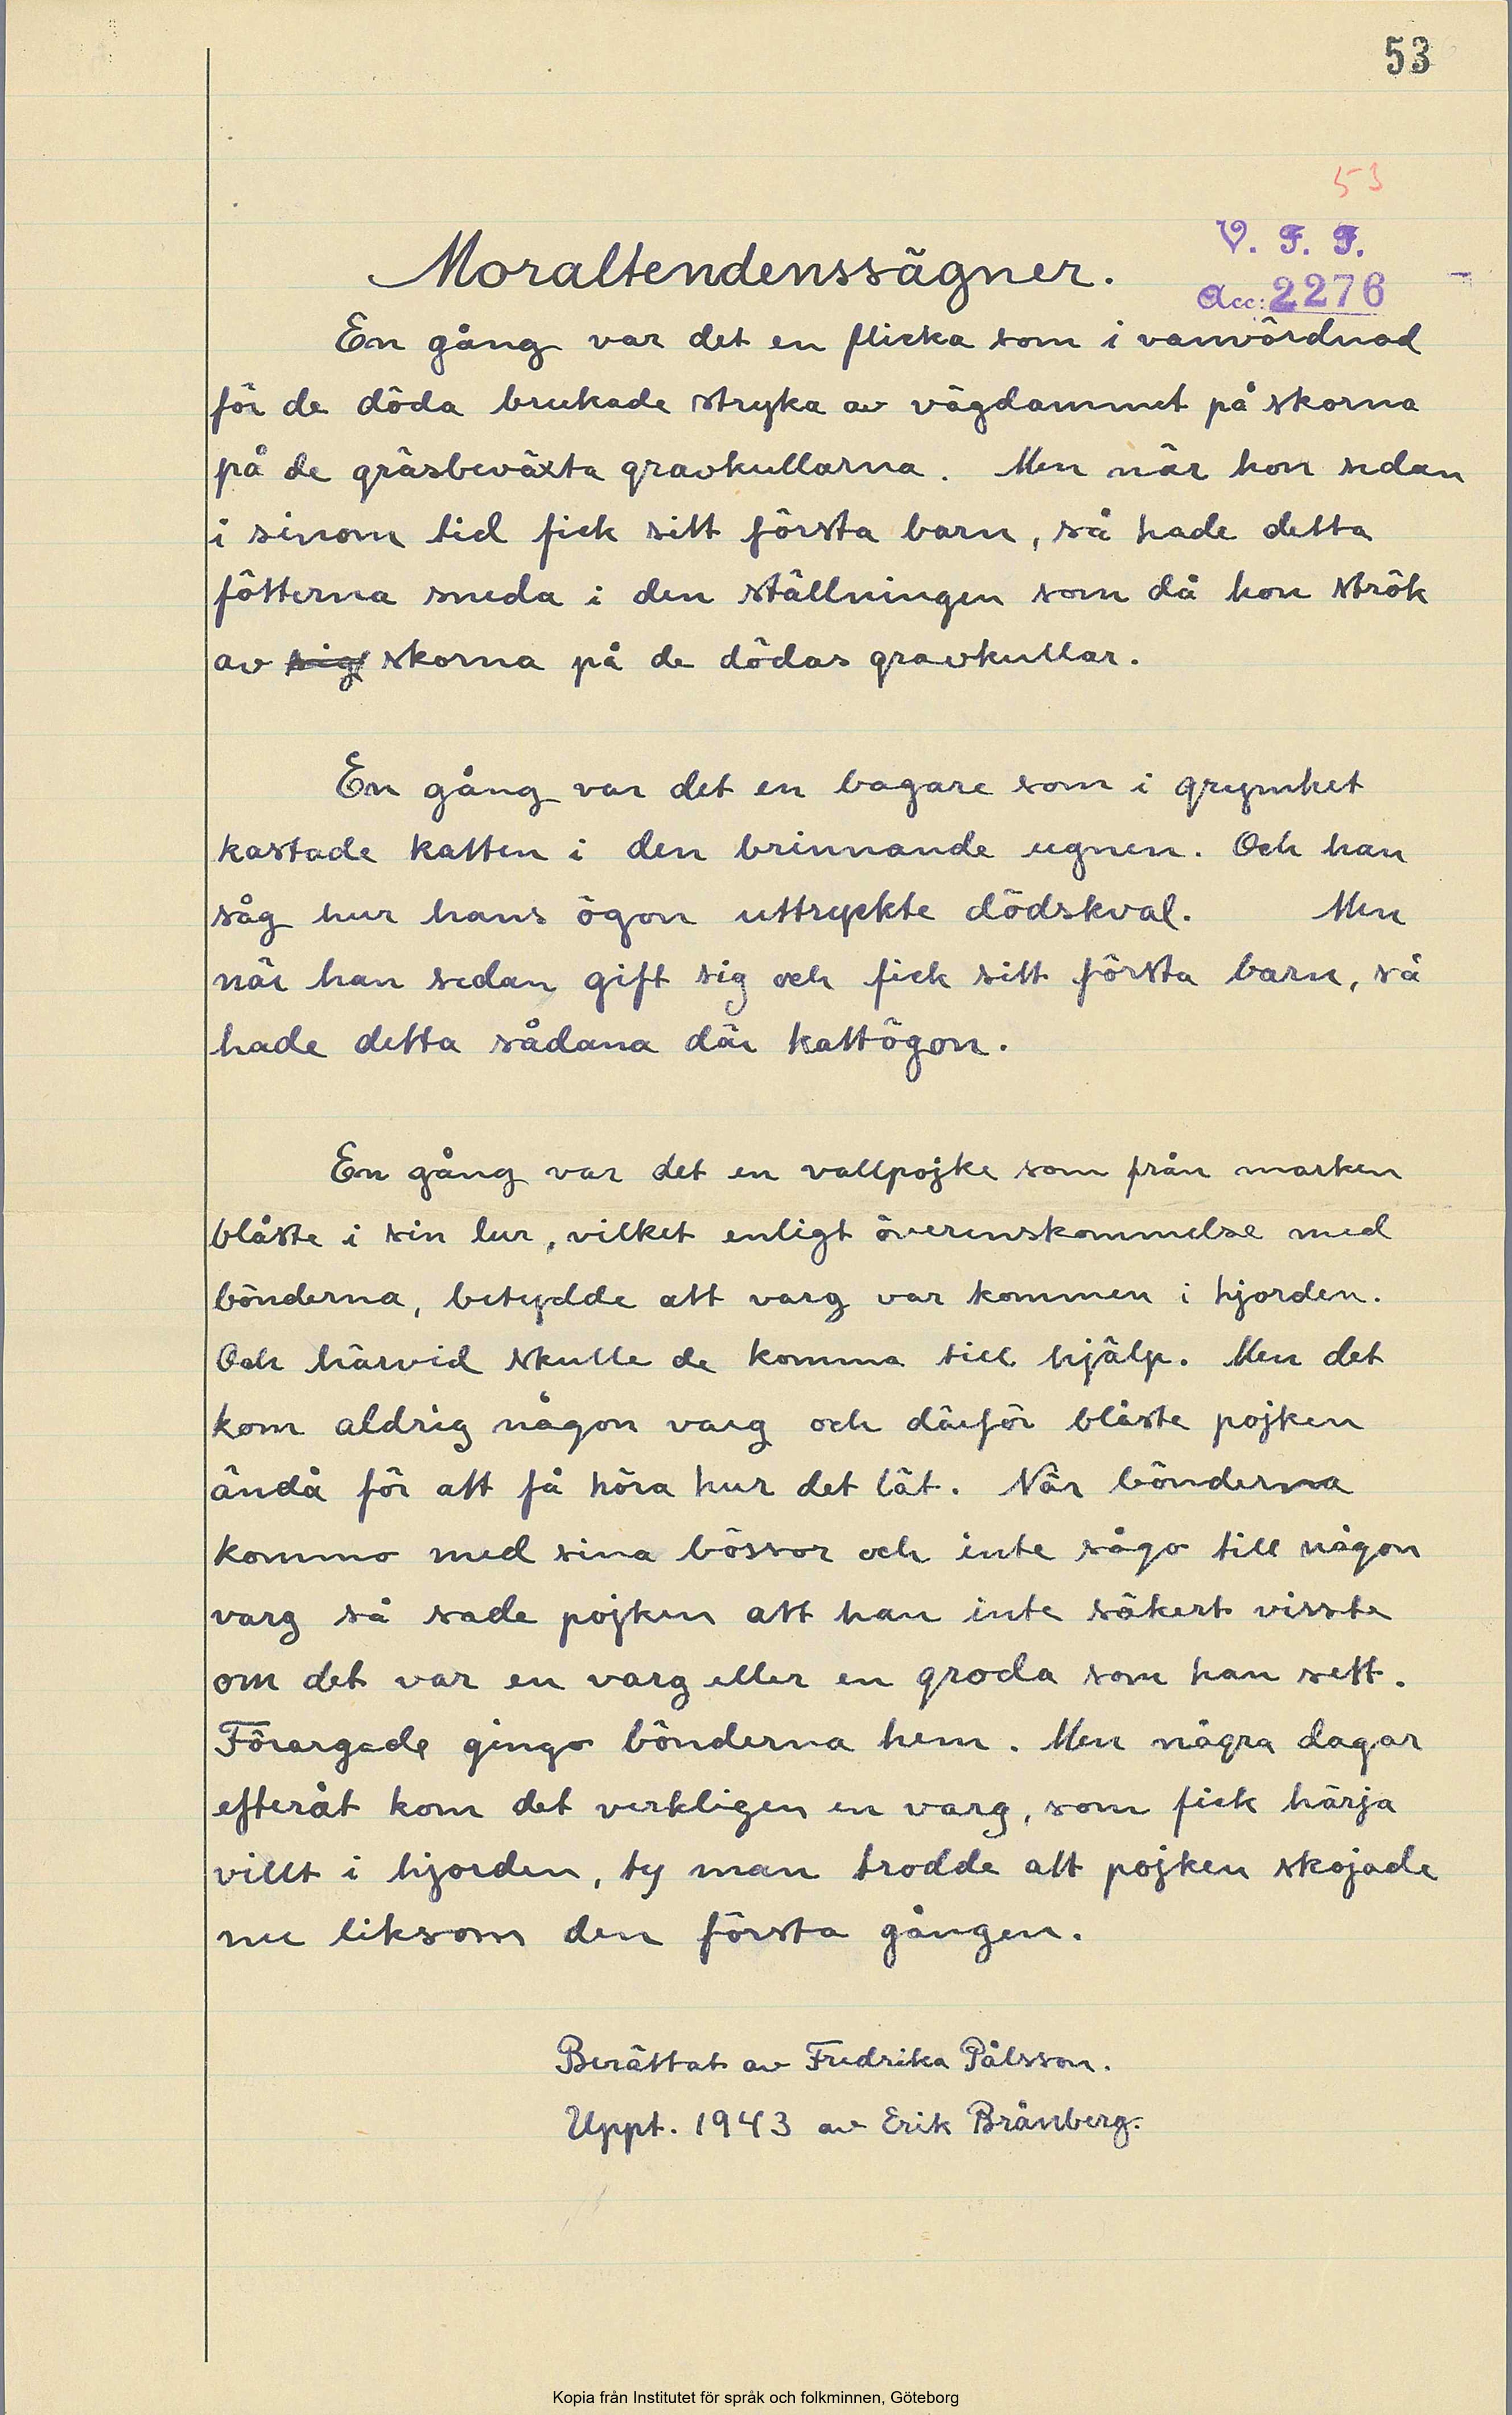 53
53
V. F. F.
Moraltendenssägner.
Acc: 2276
En gång var det en flicka som i vanvördnad
för de döda brukade stryka av vägdammet på skorna
på de gräsbeväxta gravkullarna. Men när hon sedan
i sinom tid fick sitt första barn, så hade detta
fötterna sneda i den ställningen som då hon strök
av sig skorna på de dödas gravkullar.
En gång var det en bagare som i grymhet
kastade katten i den brinnande ugnen. Och han
såg hur hans ögon uttryckte dödskval. Men
när han sedan gift sig och fick sitt första barn, så
hade detta sådana där kattögon.
En gång var det en vallpojke som från marken
blåste i sin lur, vilket enligt överenskommelse med
bönderna, betydde att varg var kommen i hjorden.
Och härvid skulle de komma till hjälp. Men det
kom aldrig någon varg och därför blåste pojken
ändå för att få höra hur det lät. När bönderna
kommo med sina bössor och inte sågo till någon
varg så sade pojken att han inte säkert visste
om det var en varg eller en groda som han sett.
Förargade gingo bönderna hem. Men några dagar
efteråt kom det verkligen en varg, som fick härja
villt i hjorden, ty man trodde att pojken skojade
nu liksom den första gången.
Berättat av Fredrika Pålsson.
Uppt. 1943 av Erik Brånberg.
Kopia från Institutet för språk och folkminnen, Göteborg